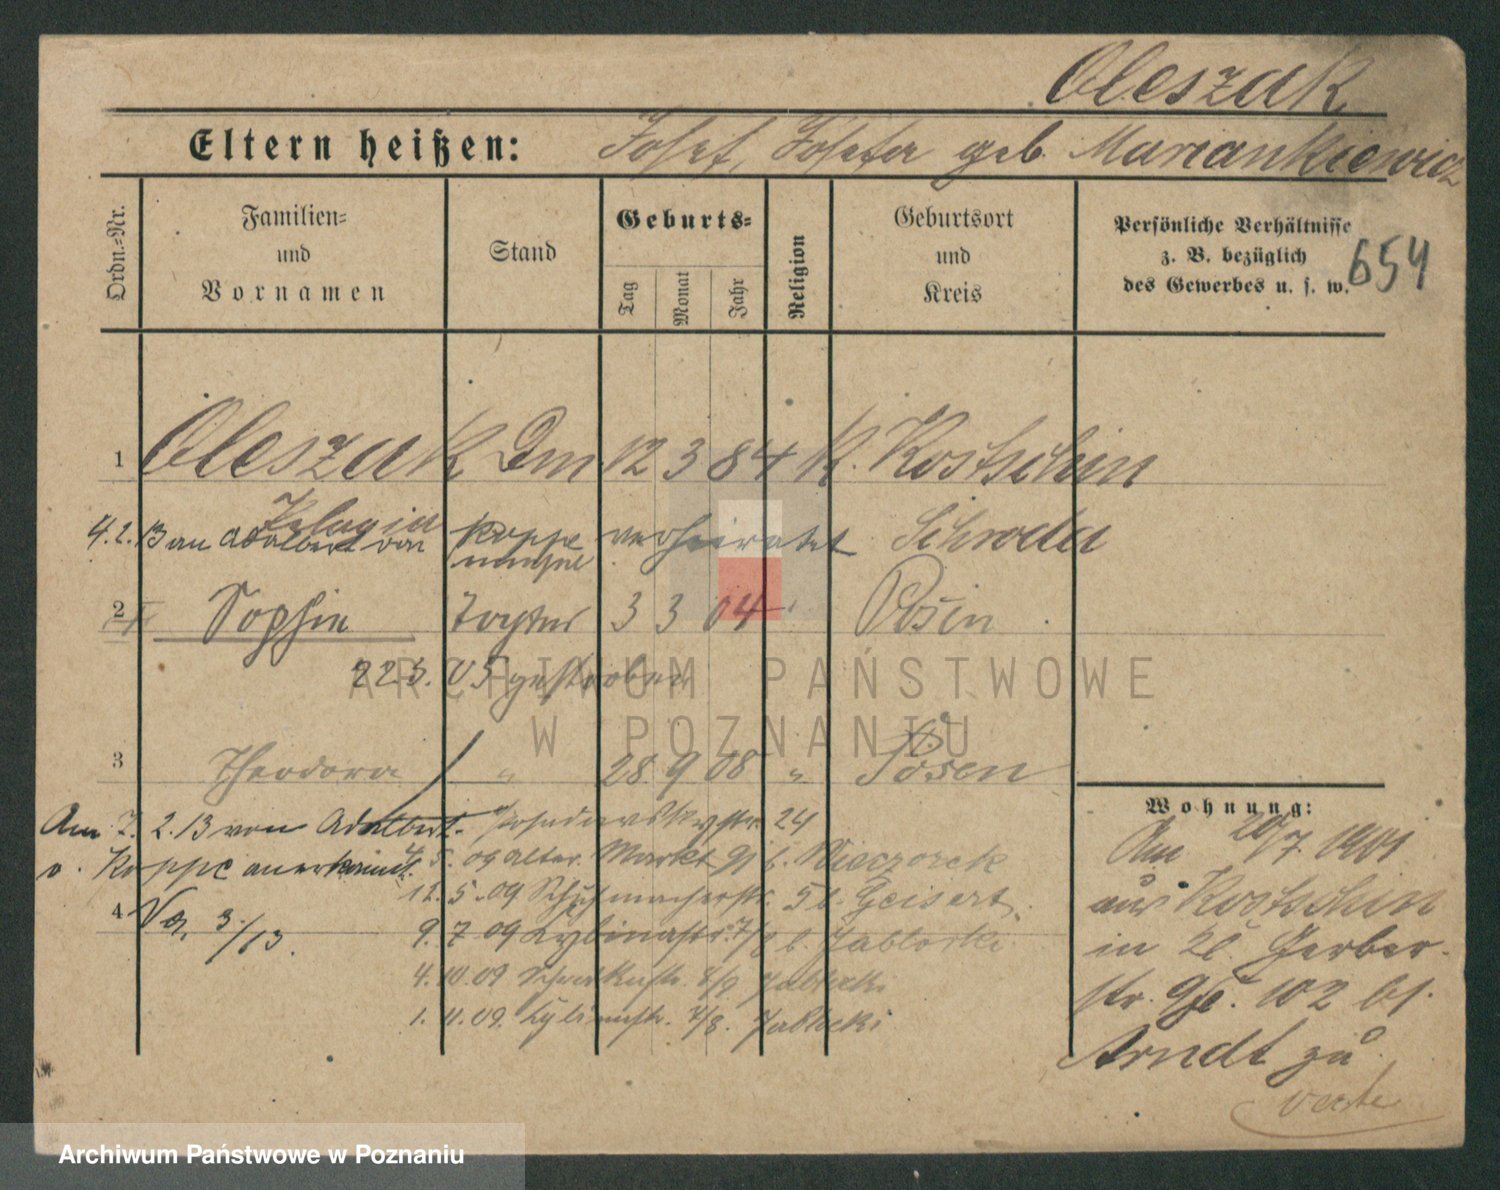 Oleszak
Eltern heißen: Josef, Josefa geb. Mariankiewicz
Ordn.-Nr.
Familien-
und
Vornamen
Stand
Geburts-
Tag
Monat
Jahr
Religion
Geburtsort
und
Kreis
Persönliche Verhältnisse
z. B. bezüglich
des Gewerbes u. s. w.
654
1 Oleszak Dm 12 3 84 K. Kostschin
Pelagia Schroda
4.2.13 an Adalbert von Koppe verheiratet
2 Sophie Tochter 3 3 04 Posen
22.3.05 gestorben
3 Theodora " 28 9 08 " Posen
Am 7. 2. 13 von Adalbert
v. Koppe anerkannt.
24
4. 5. 09 Alter Markt 91 b. Wieczorek
12. 5. 09 Schuhmacherstr. 5 b. Geisert
9. 7 09 7/8 b. Jablocki
4. 10. 09 8/9 Jablocki
1. 11. 09. 7/8. Jablocki
4 3/13.
Wohnung:
Am 20/7 1901
aus Kostschin
in Kl. Gerber-
str. 9 102 bs.
Arndt zu
verte
ARCHIWUM PAŃSTWOWE
W POZNANIU
Archiwum Państwowe w Poznaniu